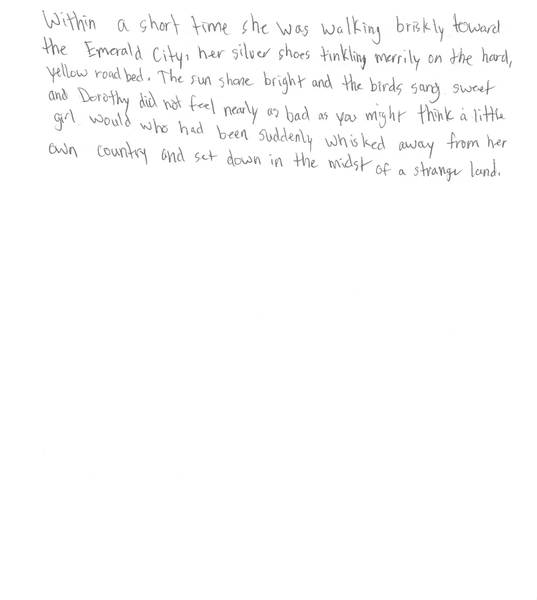 Within a short time she was walking briskly toward
the Emerald City, her silver shoes tinkling merrily on the hard,
yellow roadbed. The sun shone bright and the birds sang sweet
and Dorothy did not feel nearly as bad as you might think a little
girl would who had been suddenly whisked away from her
own country and set down in the midst of a strange land.